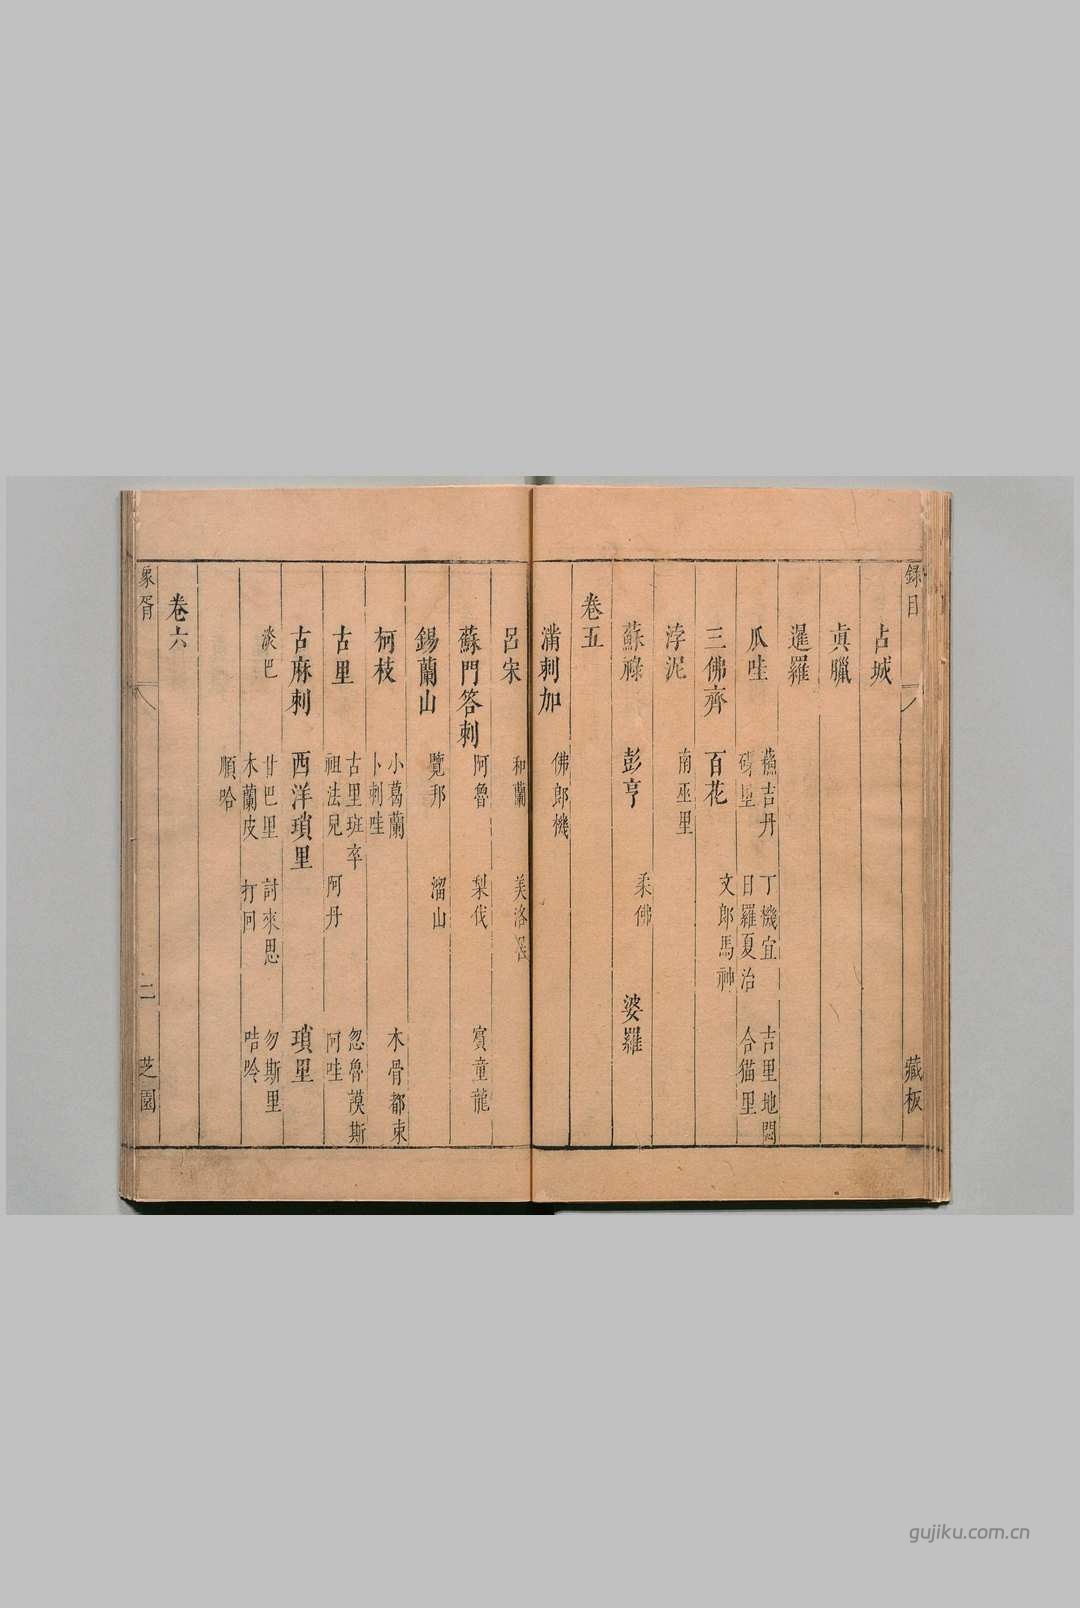 錄目
藏板
占城
眞臘
暹羅
爪哇
蘇吉丹 丁機宜 吉里地悶
碟里 日羅夏治 合猫里
三佛齊 百花
文郎馬神
浡泥
南巫里
蘇祿 彭亨 婆羅
柔佛
卷五
滿剌加
佛郎機
呂宋
和蘭 美洛居
蘇門答剌
阿魯 梨伐 賓童龍
錫蘭山
覽邦 溜山
柯枝
小葛蘭 木骨都束
卜剌哇
古里
古里班卒 忽魯謨斯
祖法兒 阿丹 阿哇
古麻剌 西洋瑣里 瑣里
淡巴 甘巴里 討來思 勿斯里
木蘭皮 打回 咭呤
順哈
卷六
象胥
二
芝園
gujiku.com.cn